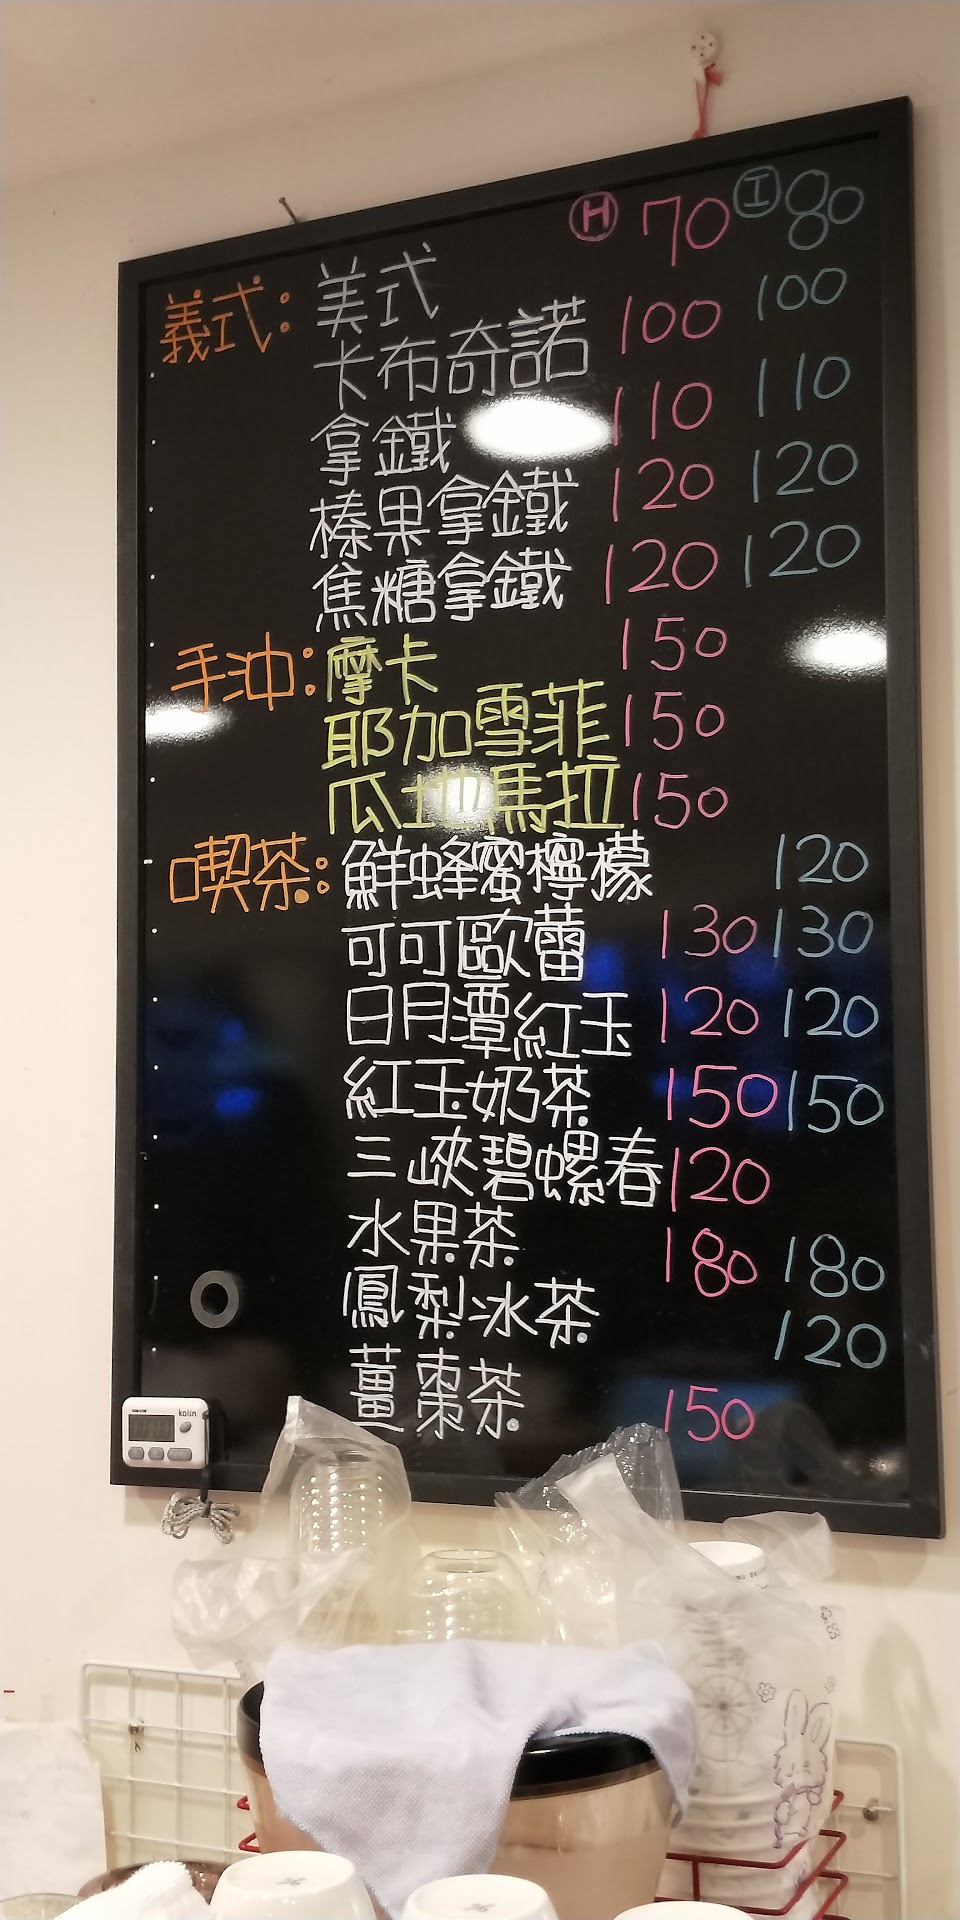 Ⓗ Ⓘ
義式：美式 70 80
卡布奇諾 100 100
拿鐵 110 110
榛果拿鐵 120 120
焦糖拿鐵 120 120
手沖：摩卡 150
耶加雪菲 150
瓜地馬拉 150
喫茶：鮮蜂蜜檸檬 120
可可歐蕾 130 130
日月潭紅玉 120 120
紅玉奶茶 150 150
三峽碧螺春 120
水果茶 180 180
鳳梨冰茶 120
薑棗茶 150
kolin